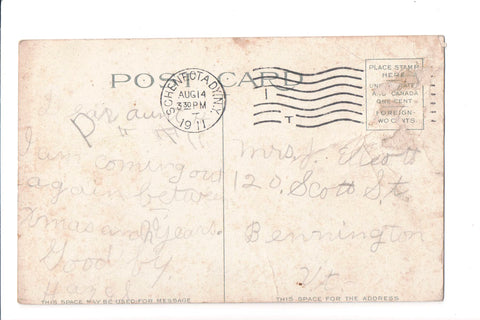 POST CARD
SCHENECTADY, N.Y.
AUG 14
330 PM
1911
PLACE STAMP
HERE
UNITED STATES
AND CANADA
ONE CENT
FOREIGN
TWO CENTS
I
T
Dear aunt
I am coming out
again between
Xmas and N Years.
Good by
Hazel
Mrs J.
120. Scott St.
Bennington
Vt.
THIS SPACE MAY BE USED FOR MESSAGE
THIS SPACE IS FOR THE ADDRESS